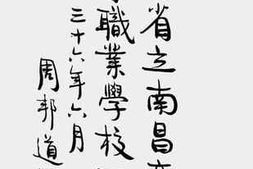 省立南昌
職業學校
三十六年六月
周邦道